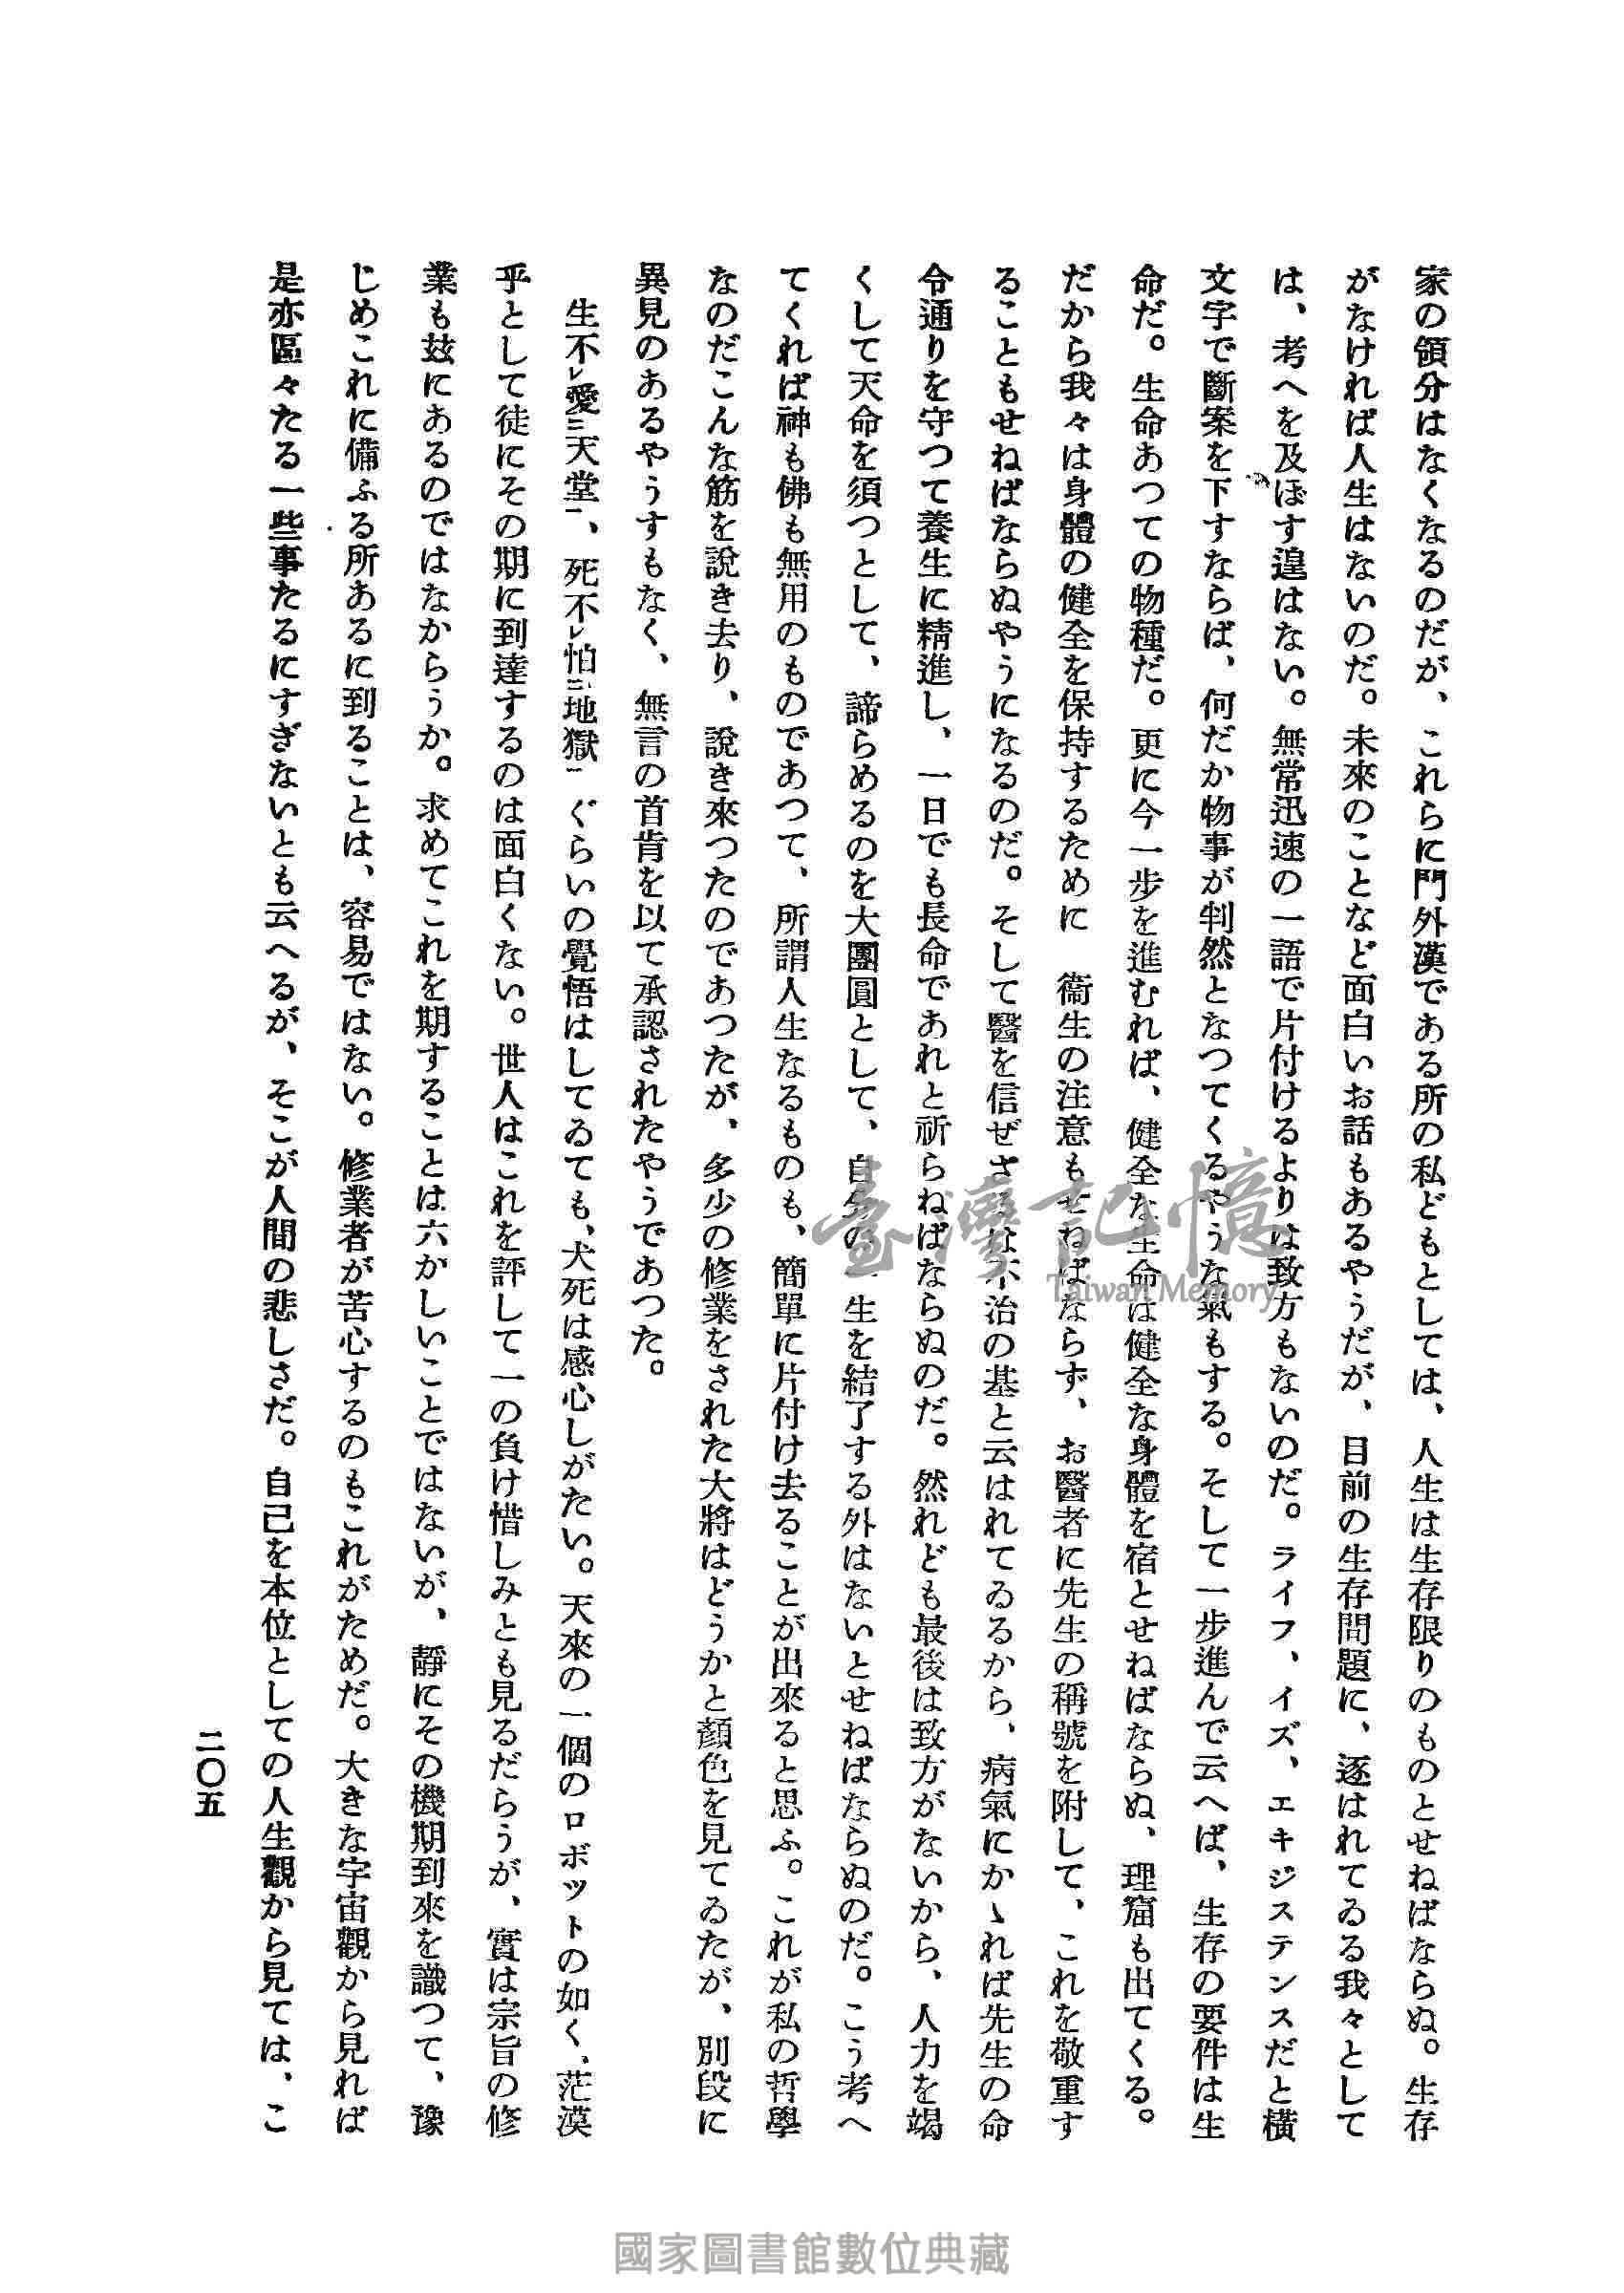 家の領分はなくなるのだが、これらに門外漢である所の私どもとしては、人生は生存限りのものとせねばならぬ。生存
がなければ人生はないのだ。未來のことなど面白いお話もあるやうだが、目前の生存問題に、逐はれてゐる我々として
は、考へを及ぼす遑はない。無常迅速の一語で片付けるよりは致方もないのだ。ライフ、イズ、エキジステンスだと橫
文字で斷案を下すならば、何だか物事が判然となつてくるやうな氣もする。そして一步進んで云へば、生存の要件は生
命だ。生命あつての物種だ。更に今一步を進むれば、健全な生命は健全な身體を宿とせねばならぬ、理窟も出てくる。
だから我々は身體の健全を保持するために 衞生の注意もせねばならず、お醫者に先生の稱號を附して、これを敬重す
ることもせねばならぬやうになるのだ。そして醫を信ぜざるは不治の基と云はれてゐるから、病氣にかゝれば先生の命
令通りを守つて養生に精進し、一日でも長命であれと祈らねばならぬのだ。然れども最後は致方がないから、人力を竭
くして天命を須つとして、諦らめるのを大團圓として、自分の一生を結了する外はないとせねばならぬのだ。こう考へ
てくれば神も佛も無用のものであつて、所謂人生なるものも、簡單に片付け去ることが出來ると思ふ。これが私の哲學
なのだこんな筋を說き去り、說き來つたのであつたが、多少の修業をされた大將はどうかと顏色を見てゐたが、別段に
異見のあるやうすもなく、無言の首肯を以て承認されたやうであつた。
生不レ愛二天堂一、死不レ怕二地獄一 ぐらいの覺悟はしてゐても、犬死は感心しがたい。天來の一個のロボットの如く、茫漠
乎として徒にその期に到達するのは面白くない。世人はこれを評して一の負け惜しみとも見るだらうが、實は宗旨の修
業も玆にあるのではなからうか。求めてこれを期することは六かしいことではないが、靜にその機期到來を識つて、豫
じめこれに備ふる所あるに到ることは、容易ではない。修業者が苦心するのもこれがためだ。大きな宇宙觀から見れば
是亦區々たる一些事たるにすぎないとも云へるが、そこが人間の悲しさだ。自己を本位としての人生觀から見ては、こ
二〇五
臺灣記憶
Taiwan Memory
國家圖書館數位典藏